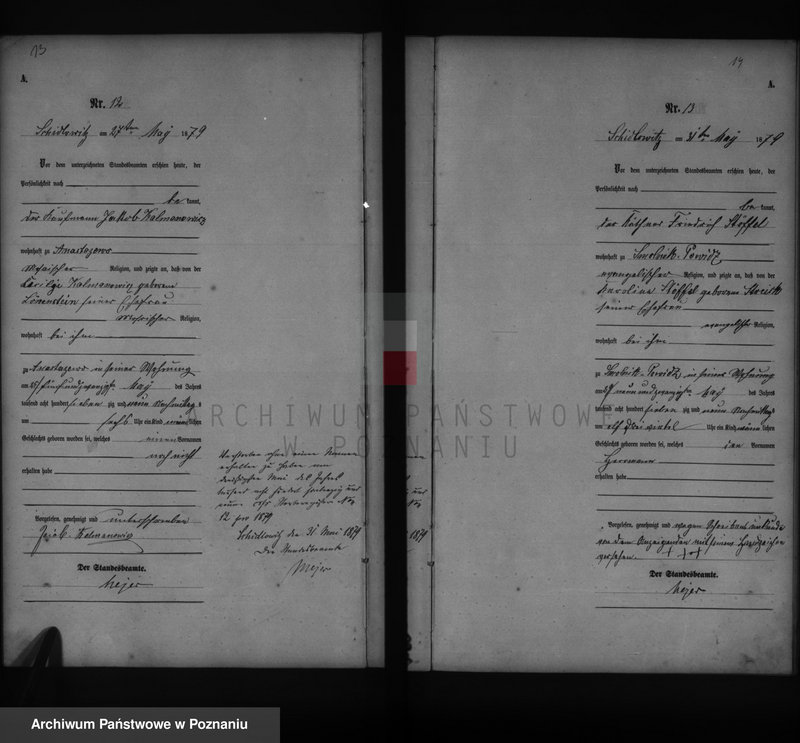 13
A.
Nr. 12
Schidlowitz am 27ten May 1879
Vor dem unterzeichneten Standesbeamten erschien heute, der
Persönlichkeit nach
be kannt,
der Kaufmann Jakob Kalmanowicz
wohnhaft zu Anastazewo
Mosaischer Religion, und zeigte an, daß von der
Caecilie Kalmanowicz geborene
Löwenstein seiner Ehefrau
Mosaischer Religion,
wohnhaft bei ihm
zu Anastazewo in seiner Wohnung
am fünfundzwanzigsten May des Jahres
tausend acht hundert sieben zig und neun Nachmittags
um sechs Uhr ein Kind männlichen
Geschlechts geboren worden sei, welches einen Vornamen
noch nicht
erhalten habe
Vorgelesen, genehmigt und unterschrieben
Jacob Kalmanowicz
Der Standesbeamte.
Meyer
Verstorben ohne einen Namen
erhalten zu haben am
dreißigsten Mai des Jahres
tausend acht hundert siebenzig und
neun cfr Sterberegister No
12 pro 1879
Schidlowitz den 31 Mai 1879
Der Standesbeamte
Meyer
14
A.
Nr. 13
Schidlowitz am 31ten May 1879
Vor dem unterzeichneten Standesbeamten erschien heute, der
Persönlichkeit nach
be kannt,
der Käthner Friedrich Stöffel
wohnhaft zu Smolnik-Powidz
evangelischer Religion, und zeigte an, daß von der
Karoline Stöffel geborene
seiner Ehefrau
evangelischer Religion,
wohnhaft bei ihm
zu Smolnik-Powidz in seiner Wohnung
am neunundzwanzigsten May des Jahres
tausend acht hundert sieben zig und neun Nachmittags
um elf drei viertel Uhr ein Kind männlichen
Geschlechts geboren worden sei, welches den Vornamen
Herrmann
erhalten habe
Vorgelesen, genehmigt und wegen Schreibensunkunde
von dem Anzeigenden mit seinem Handzeichen
versehen. +++
Der Standesbeamte.
Meyer
ARCHIWUM PAŃSTWOWE
W POZNANIU
Archiwum Państwowe w Poznaniu